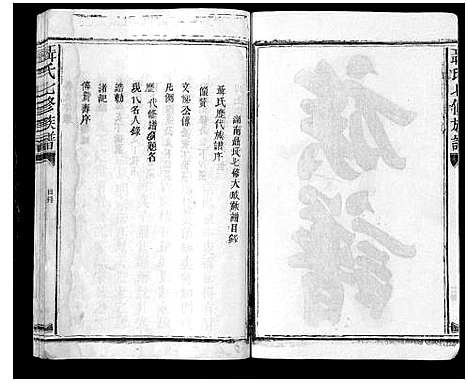 聶氏七修族譜
族譜
湖南聶氏七修大成族譜目錄
聶氏歷代族譜序
像贊
文誌公傳
凡例
歷代修譜領題名
現代名人錄
誥勅
諸記
傳贊壽序
聶氏七修族譜
目錄